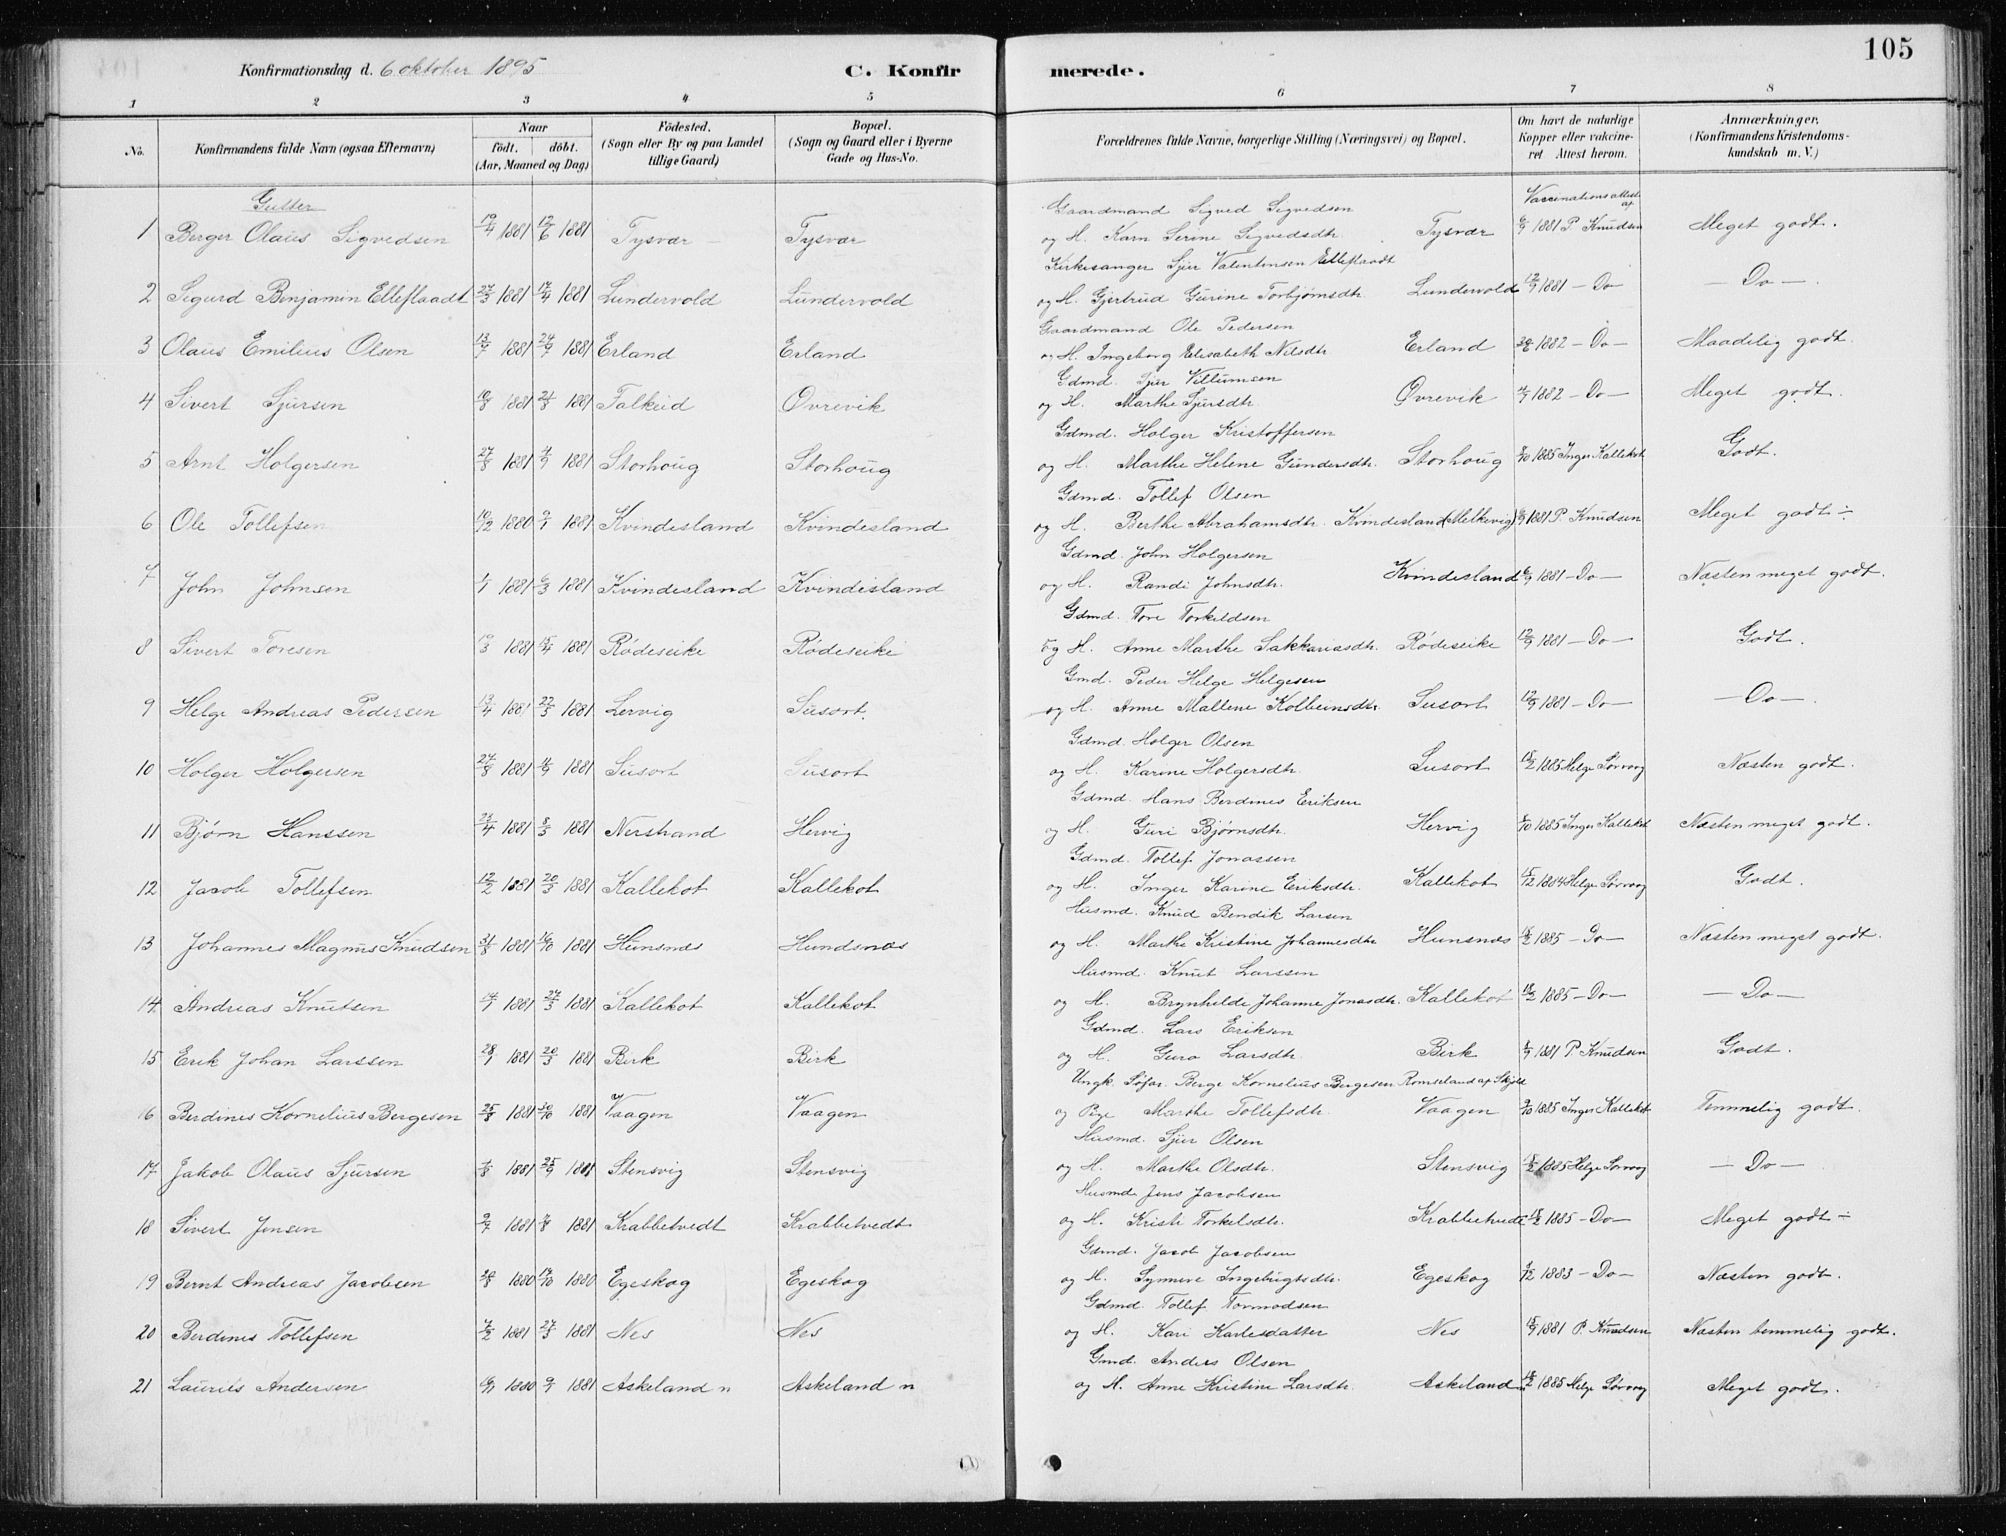 105
Konfirmationsdag d. 6 oktober 1895
C. Konfirmerede.
1 2 3 4 5 6 7 8
No.
Konfirmandens fulde Navn (ogsaa Efternavn)
Naar
født. døbt.
(Aar, Maaned og Dag)
Fødested.
(Sogn eller By og paa Landet
tillige Gaard)
Bopæl.
(Sogn og Gaard eller i Byerne
Gade og Hus-No.
Forældrenes fulde Navne, borgerlige Stilling (Næringsvei) og Bopæl.
Om havt de naturlige
Kopper eller vakcine-
ret Attest herom.
Anmærkninger,
(Konfirmandens Kristendoms-
kundskab m. V.)
Gutter
Gaardmand Sigved Sigvedsen
Vaccinations Attest af
1 Berger Olaus Sigvedsen 19/4 1881 12/6 1881 Tysvær Tysvær og H. Karn Serine Sigvedsdtr. Tysvær 6/9 1881 P. Knudsen Meget godt.
Kirkesanger Sjur Valentinsen Elleflaadt
2 Sigurd Benjamin Elleflaadt 27/3 1881 17/4 1881 Lundervold Lundervold og H. Gjertrud Gurine Torbjørnsdtr. Lundervold 12/9 1881 – Do – – Do – .
Gaardmand Ole Pedersen
3 Olaus Emilius Olsen 13/7 1881 24/7 1881 Erland Erland og H. Ingeborg Elisabeth Nilsdtr Erland 1882 – Do – Maadelig godt.
Gdmd. Sjur Villumsen
4 Sivert Sjursen 10/8 1881 21/8 1881 Falkeid Øvrevik og H. Marthe Sjursdtr. Øvrevik 1882 – Do – Meget godt.
Gdmd. Holger Kristoffersen
5 Arnt Holgersen 27/8 1881 4/9 1881 Storhoug Storhoug og H. Marthe Helene Gundersdtr. Storhoug 1885 Inger Kallekot Godt.
Gdmd. Tollef Olsen
6 Ole Tollefsen 1880 9/1 1881 Kvindesland Kvindesland og H. Berthe Abrahamsdtr. Kvindesland (Melkevig) 6/9 1881 P. Knudsen Meget godt ÷
Gdmd. John Holgersen
7 John Johnsen 1/1 1881 6/3 1881 Kvindesland Kvindesland og H. Randi Johnsdtr. Kvindesland 6/9 1881 – Do – Næsten meget godt.
Gdmd. Tore Torkildsen
8 Sivert Toresen 1881 15/4 1881 Rødeseike Rødeseike og H. Anne Marthe Sakkariasdtr. Rødeseike 12/9 1881 – Do – Godt.
Gmd. Peder Helge Helgesen
9 Helge Andreas Pedersen 13/4 1881 22/5 1881 Lervig Susort. og H. Anne Mallene Kolbeinsdtr Susort 12/9 1881 – Do – – Do – .
Gdmd. Holger Olsen
10 Holger Holgersen 27/8 1881 4/9 1881 Susort Susort og H. Karine Holgersdtr. Susort 15/2 1885 Helge Sørvaag Næsten godt.
Gdmd. Hans Berdines Eriksen
11 Bjørn Hanssen 1881 1881 Nerstrand Hervig og H. Guri Bjørnsdtr. Hervig 1885 Inger Kallekot Næsten meget godt.
Gdmd. Tollef Jonassen
12 Jacob Tollefsen 12/2 1881 20/3 1881 Kallekot Kallekot og H. Inger Karine Eriksdtr. Kallekot 1884 Helge Sørvaag Godt.
Husmd. Knud Bendik Larsen
13 Johannes Magnus Knudsen 31/8 1881 16/10 1881 Hunsnæs Hundsnæs og H. Marthe Kristine Johannesdtr Hunsnæs 1885 – Do – Næsten meget godt.
Husmd. Knut Larssen
14 Andreas Knutsen 1881 27/3 1881 Kallekot Kallekot og H. Brynhilde Johanne Jonasdtr. Kallekot 1885 – Do – – Do –
Gdmd. Lars Eriksen
15 Erik Johan Larssen 28/1 1881 20/3 1881 Birk Birk og H. Guro Larsdtr. Birk 1881 P. Knudsen Godt.
Ungk. Søfar. Berge Kornelius Bergesen Romseland af Skjold
16 Berdines Kornelius Bergesen 25/8 1881 30/10 1881 Vaagen Vaagen og Pige Marthe Tollefsdtr. Vaagen 1885 Inger Kallekot Temmelig godt.
Husmd. Sjur Olsen
17 Jakob Olaus Sjursen 1881 25/9 1881 Stensvig Stensvig og H. Marthe Olsdtr. Stensvig 1885 Helge Sørvaag – Do –
Husmd. Jens Jacobsen
18 Sivert Jensen 9/7 1881 7/8 1881 Krabbetvedt Krabbetvedt og H. Kristi Torkelsdtr. Krabbetvedt 1885 – Do – Meget godt ÷
Gdmd. Jacob Jacobsen
19 Bernt Andreas Jacobsen 1880 1880 Egeskog Egeskog og H. Synneve Ingebrigtsdtr. Egeskog 1883 – Do – Næsten godt.
Gdmd. Tollef Tormodsen
20 Berdines Tollefsen 1881 27/3 1881 Nes Nes og H. Kari Karlesdatter Nes 1881 P. Knudsen Næsten temmelig godt.
Gmd. Anders Olsen
21 Laurits Andersen 1880 9/1 1881 Askeland n Askeland n og H. Anne Kristine Larsdtr. Askeland 1885 Helge Sørvaag Meget godt.